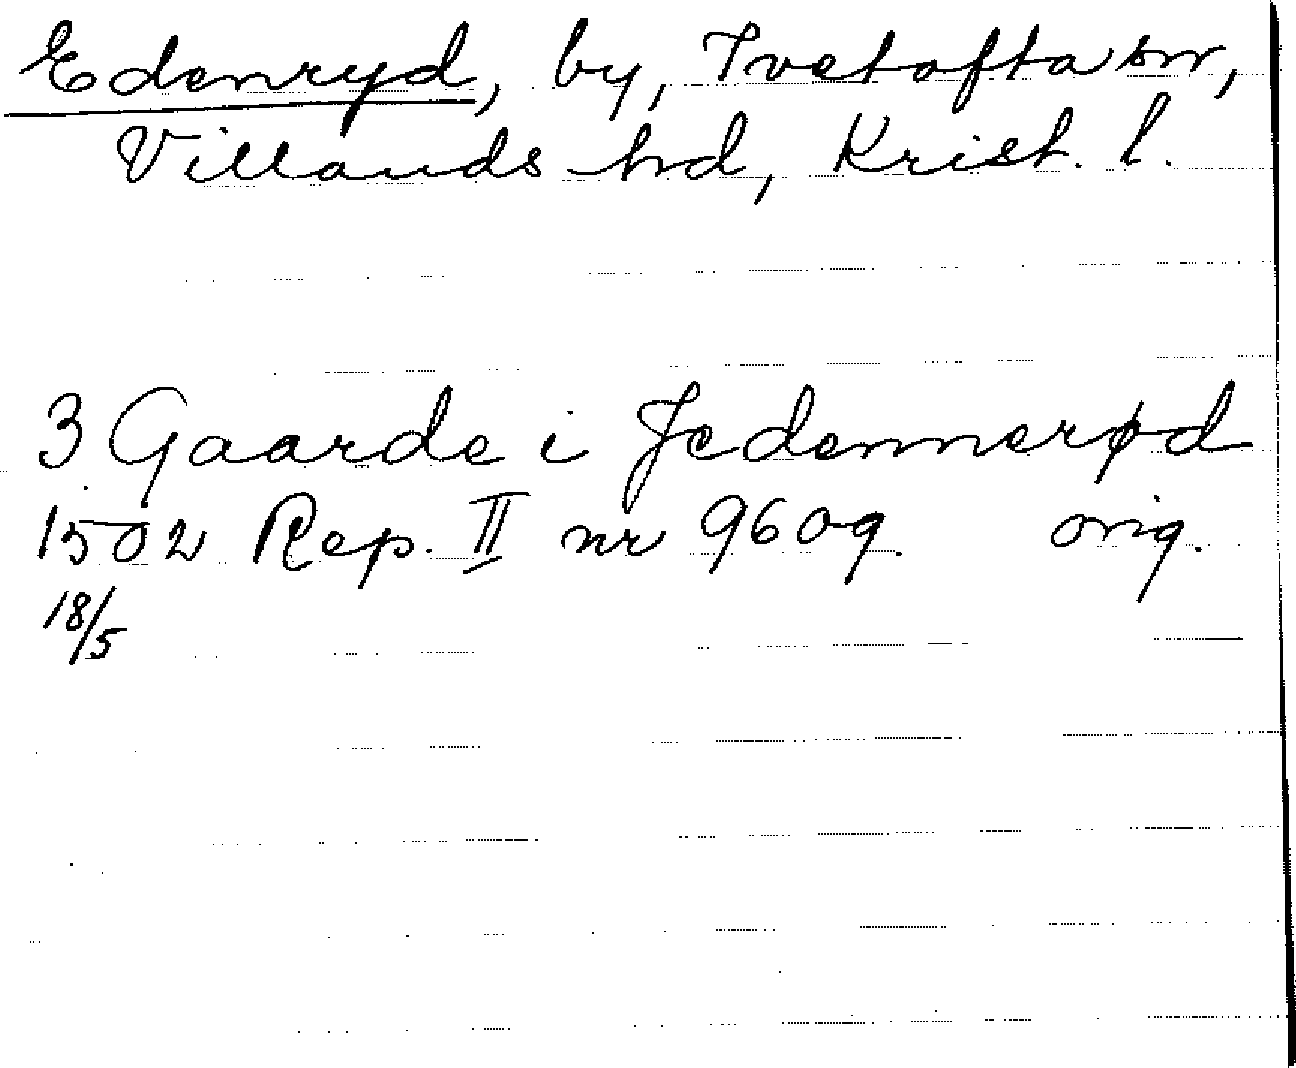 Edenryd, by, Ivetofta sn,
Villands hd, Krist. l.
3 Gaarde i Jedennerød
1502 Rep. II nr 9609. orig.
18/5